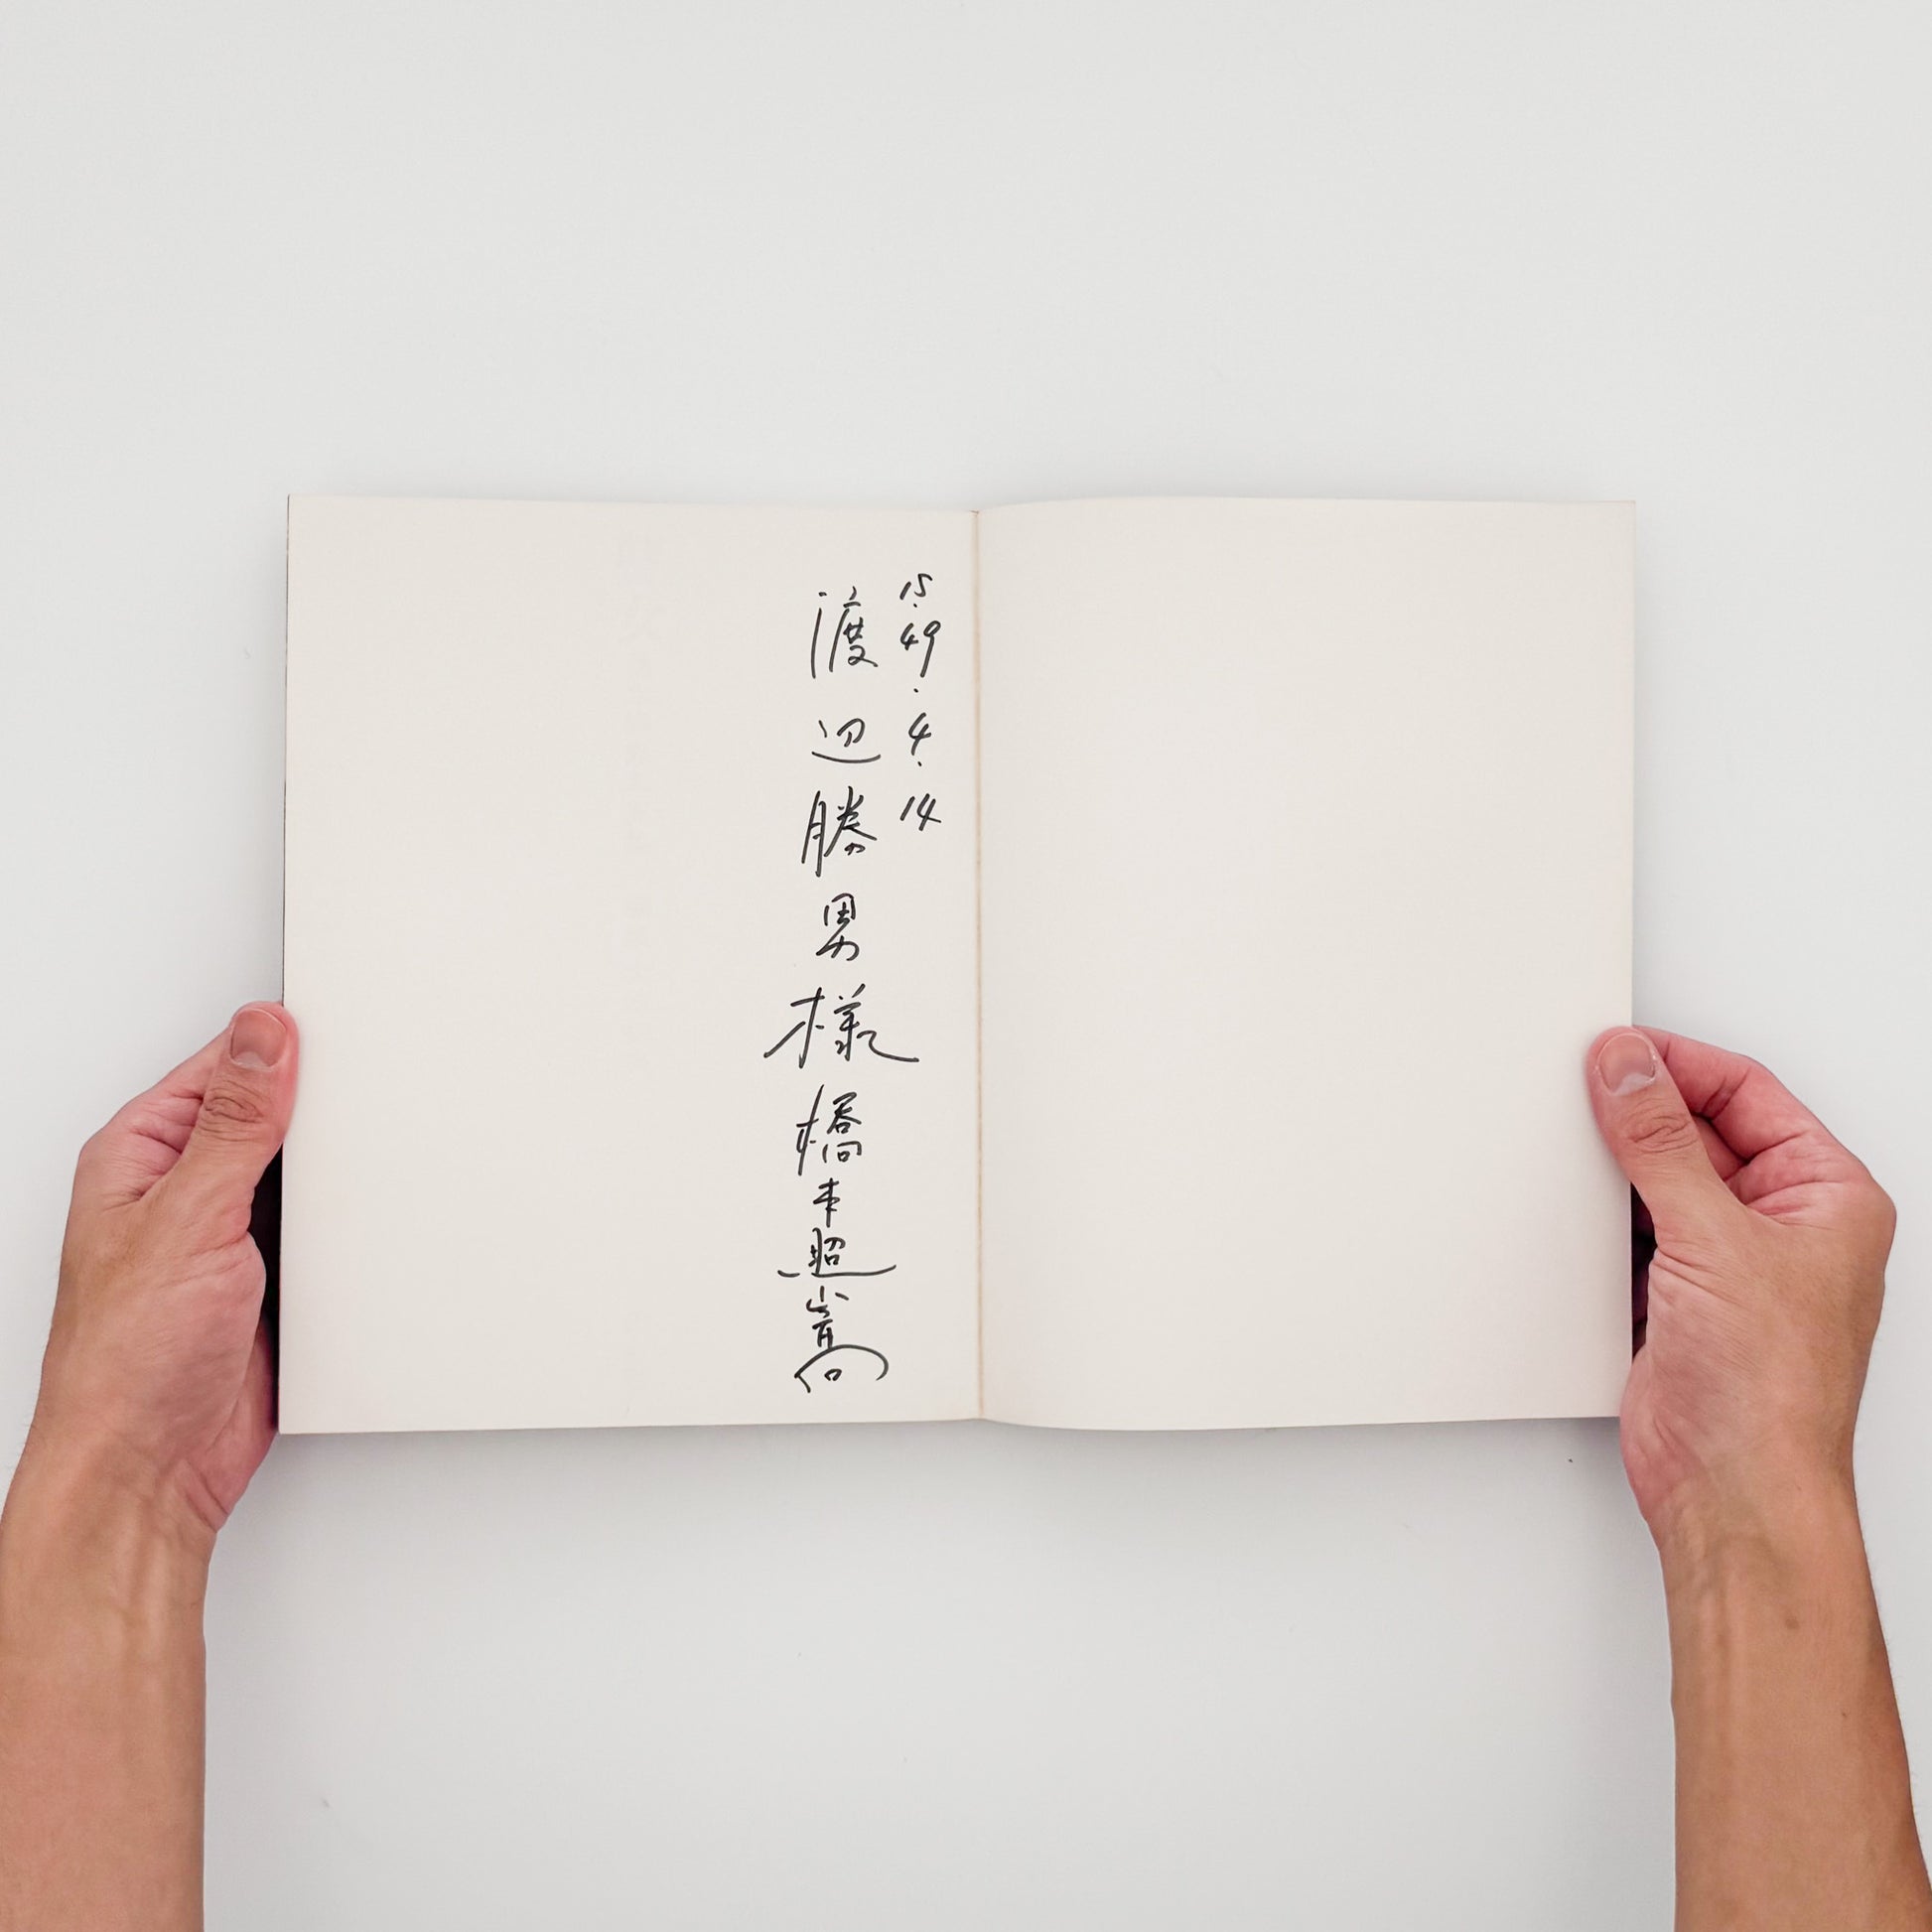 15.49.4.14
渡辺勝男様橋本照嵩